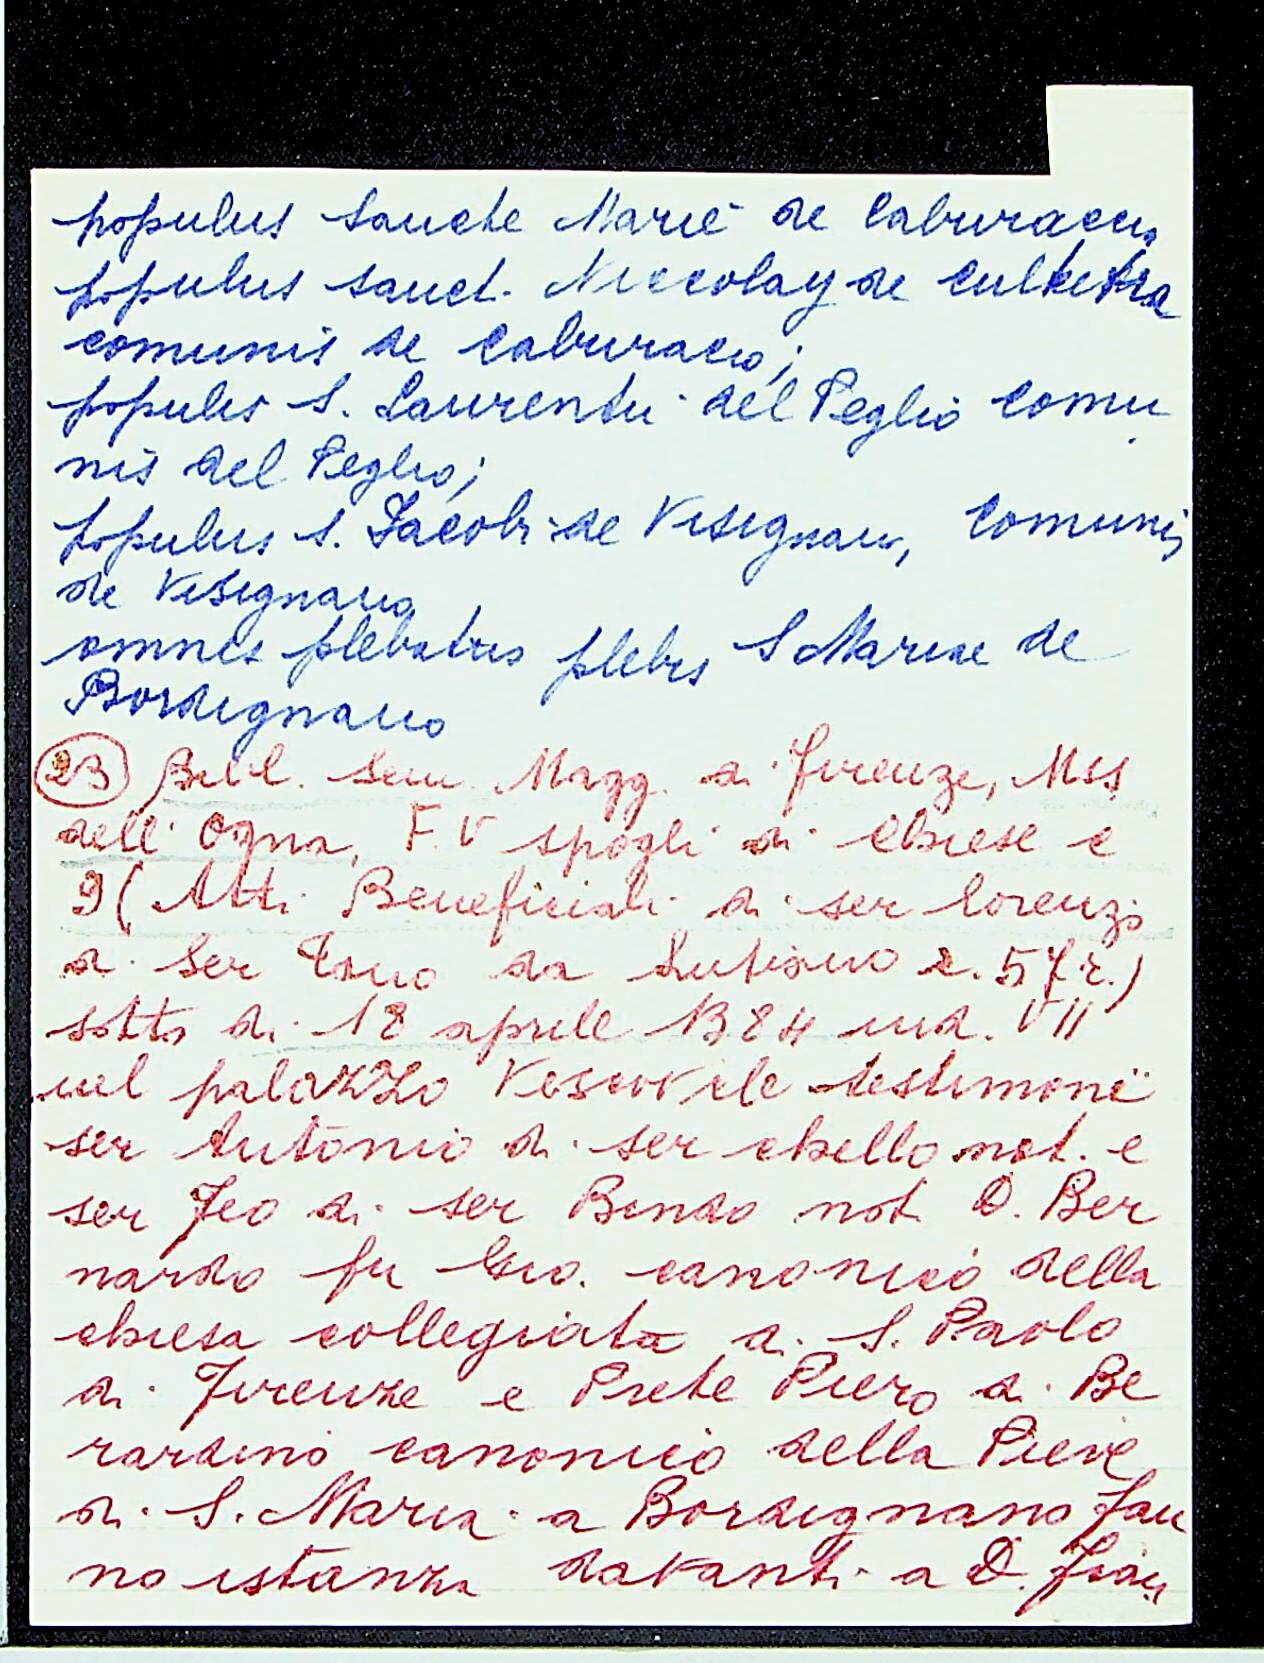 populus Sancte Marie de Caburacco
populus sanct. Niccolay de Culketra
comunis de Caburaco;
populus S. Laurentii del Peglio comu
nis del Peglio;
populus S. Jacobi de Visignano, Comunis
de Visignano
omnes plebatus plebis S Mariae de
Bordignano
23 Bibl. Sem. Magg. di Firenze, Mss
dell'Ogna, F. V spogli di Chiese c
9 (Atti Beneficiali di ser Lorenzo
di Ser Tano da Lutiano c. 57 r.)
sotto dì 18 aprile 1384 ind. VII
nel palazzo Vescovile testimoni
ser Antonio di ser Chello not. e
ser Feo di ser Bindo not D. Ber
nardo fu Gio. canonico della
chiesa collegiata di S. Paolo
di Firenze e Prete Piero di Be
rardino canonico della Pieve
di S. Maria a Bordignano fan
no istanza davanti a D.